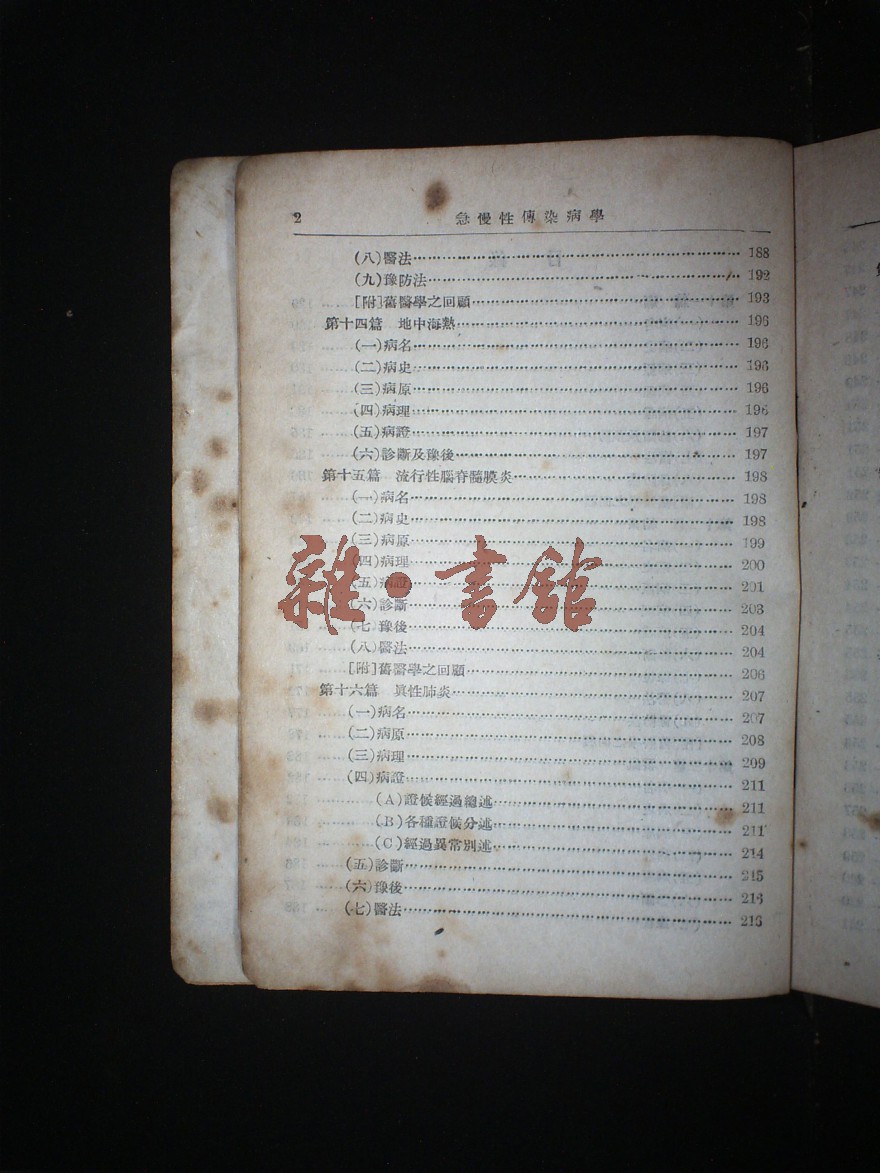 2 急慢性傳染病學
(八)醫法 188
(九)豫防法 192
[附]舊醫學之回顧 193
第十四篇 地中海熱 196
(一)病名 196
(二)病史 196
(三)病原 196
(四)病理 196
(五)病證 197
(六)診斷及豫後 197
第十五篇 流行性腦脊髓膜炎 198
(一)病名 198
(二)病史 198
(三)病原 199
(四)病理 200
(五)病證 201
(六)診斷 203
(七)豫後 204
(八)醫法 204
[附]舊醫學之回顧 206
第十六篇 眞性肺炎 207
(一)病名 207
(二)病原 208
(三)病理 209
(四)病證 211
(A)證候經過總述 211
(B)各種證候分述 211
(C)經過異常別述 214
(五)診斷 215
(六)豫後 216
(七)醫法 216
雜·書館